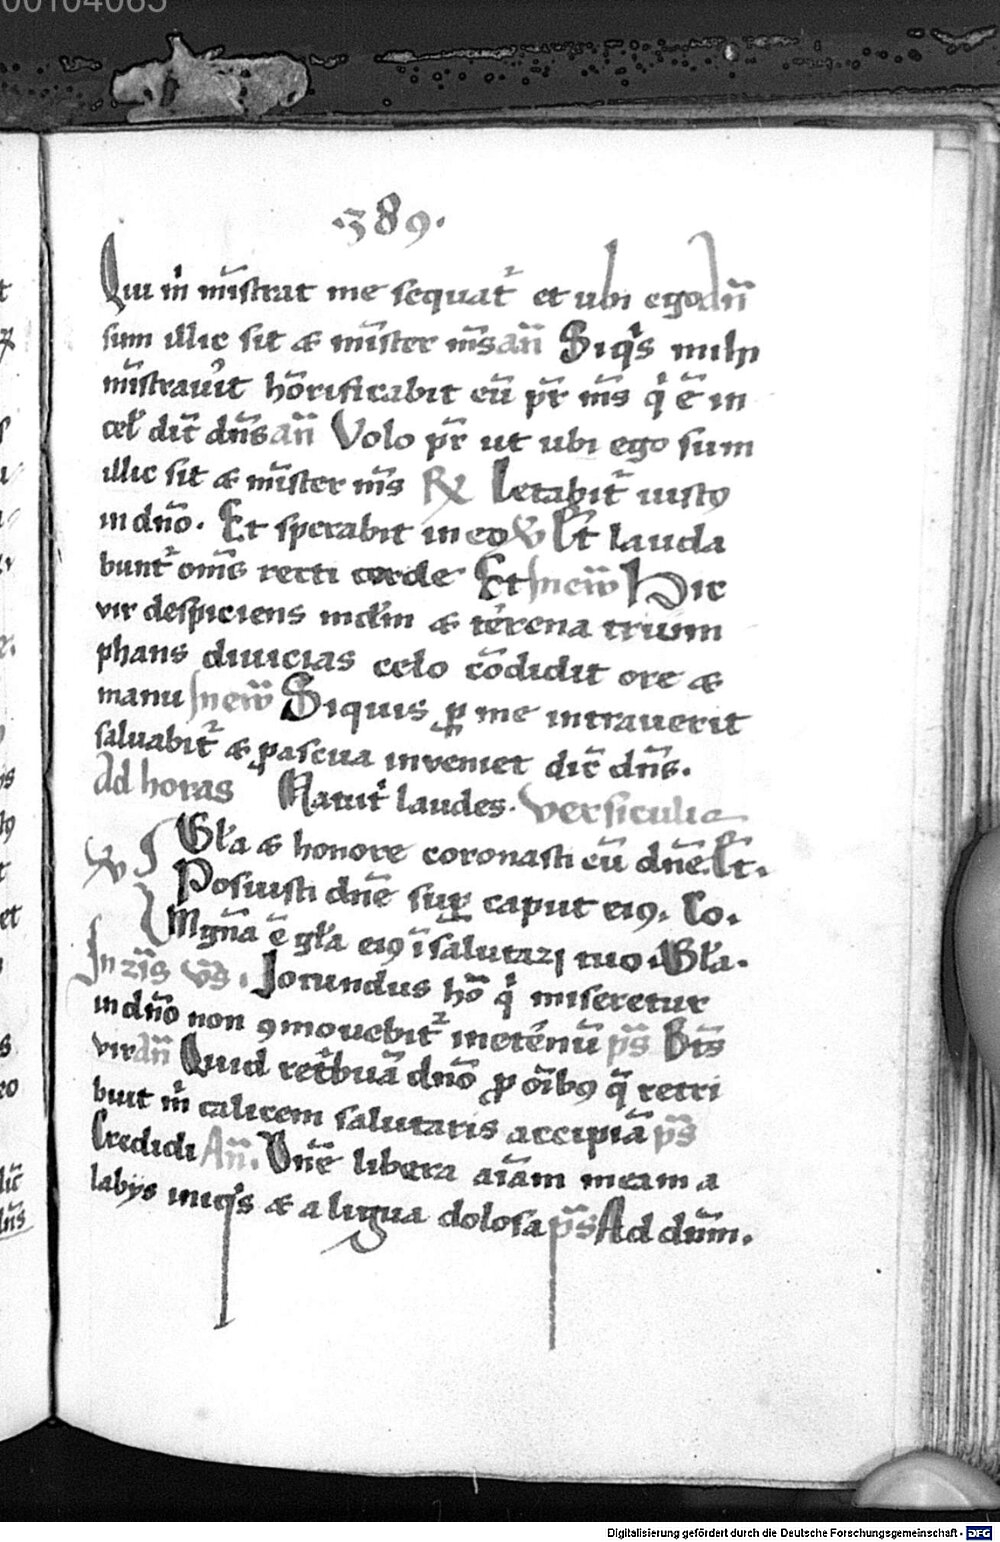 00104085
·389·
Qui m̄ mīstrat me sequat̄ et ubi ego dn̄
sum illic sit & mīster ms̄ an̄ Siqͥs mihi
mīstrav̓it hōrificabit eū pr̄ ms̄ qͥ ē in
cel̓ dic̄ dn̄s an̄ Volo pr̄ ut ubi ego sum
illic sit & mīster ms̄ ℟ Letabit̄ iustꝰ
in dn̄o. Et sperabit in eo ℣ Et lauda
bunt̄ om̄s recti corde Et In ew̄ Hic
vir despiciens mūd̄m & terrena trium
phans divicias celo cōdidit ore &
manu In ew̄ Siquis ꝑ me intraverit
salvabit̄ & pascua inveniet dic̄ dn̄s.
Ad horas Matut̄ laudes. versiculi
℣ Gl̄a & honore coronasti eū dn̄e Et.
Posuisti dn̄e suꝑ caput eiꝰ. Co.
Mgn̄a ē gl̄a eiꝰ ī salutari tuo. Gl̄a.
In ij īs vs̄. Jocundus hō qͥ miseretur
in dn̄o non ꝯmovebit̄ in etērnū ps̄ Bt̄s
vir an̄ Quid ret̓buā dn̄o ꝓ oībꝰ q̄ retri
buit m̄ calicem salutaris accipiā ps̄
Credidi An̄. Dn̄e libera aīam meam a
labijs iniqͥs & a ligua dolosa ps̄ Ad dn̄m.
Digitalisierung gefördert durch die Deutsche Forschungsgemeinschaft - DFG